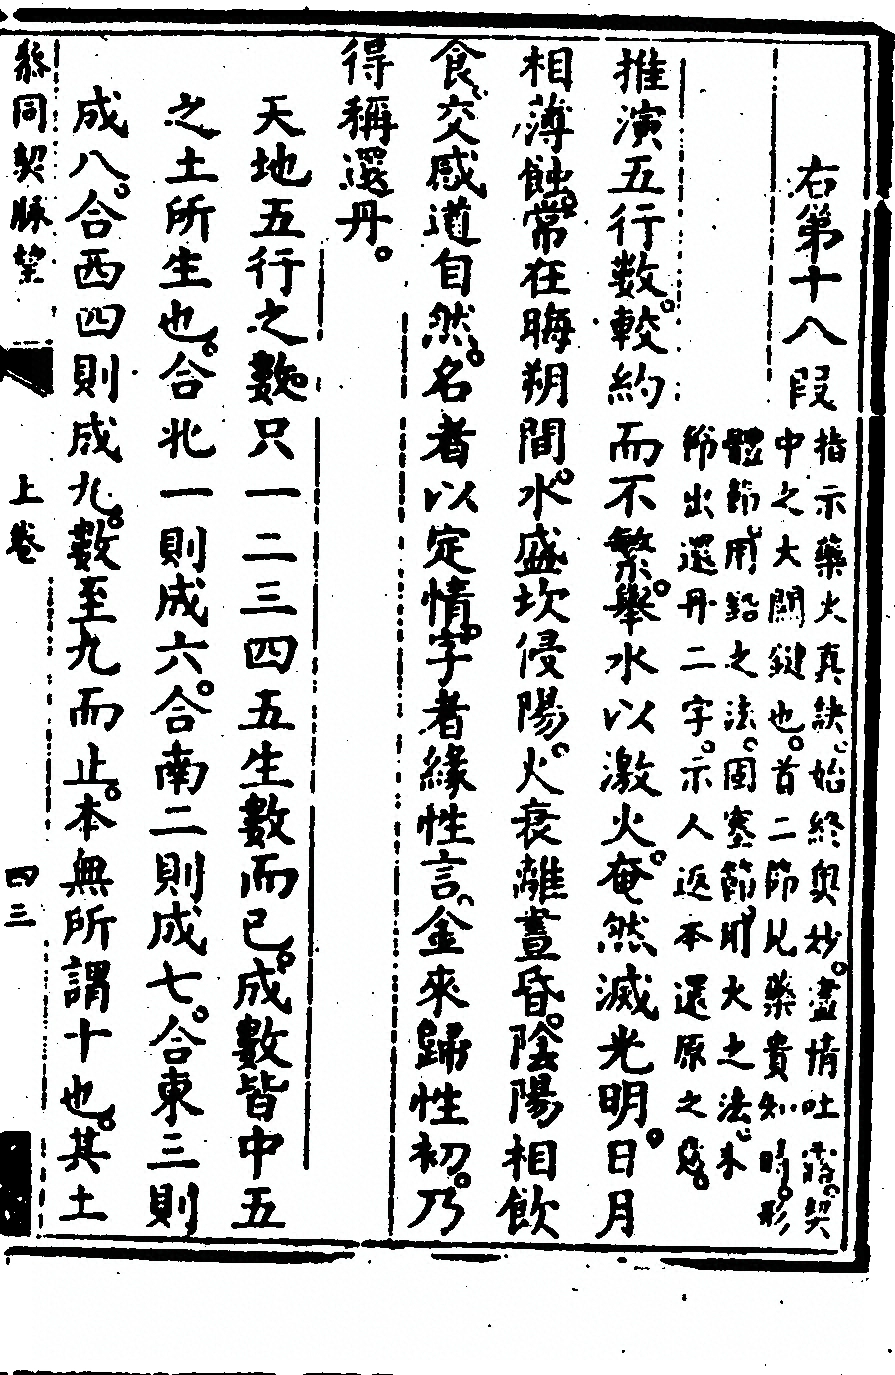 右第十八段
指示藥火真訣。始終奧妙。盡情吐露。契
中之大關鍵也。首二節比藥貴知時。形
體節用鉛之法。固塞節用火之法。末
節出還丹二字。示人返本還原之
推演五行數。較約而不繁。舉水以激火。奄然滅光明。日月
相薄蝕。常在晦朔間。水盛坎侵陽。火衰離晝昏。陰陽相飲
食。交感道自然。名者以定情。字者緣性言。金來歸性初。乃
得稱還丹。
天地五行之數只一二三四五生數而已。成數皆中五
之土所生也。合北一則成六。合南二則成七。合東三則
成八。合西四則成九。數至九而止。本無所謂十也。其土
叅同契脉望
上卷
四三